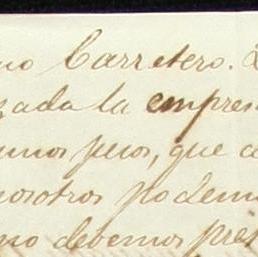 no Carretero.
zada la empres
unos pesos, que a
nosotros podem
mo debemos pres